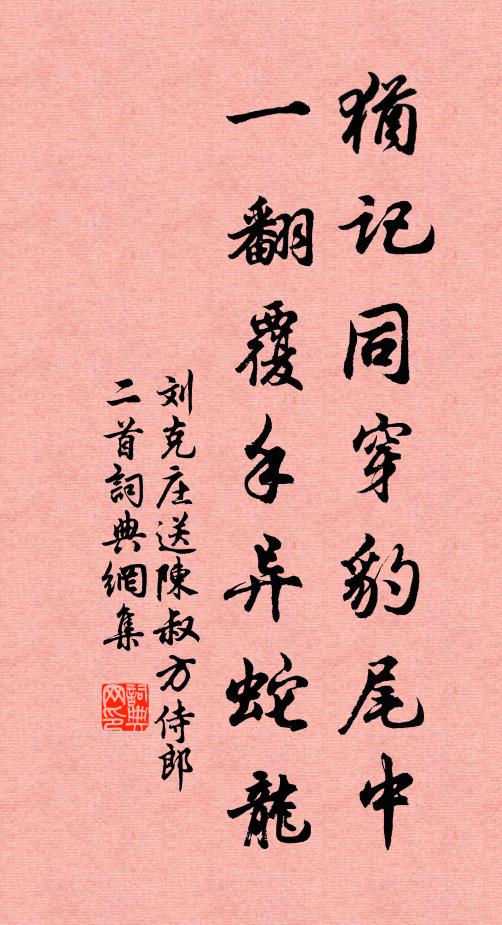 猶记同穿豹尾中
一翻覆手异蛇龍
刘克庄送陳叔方侍郎
二首詞典網集
詞典
网印